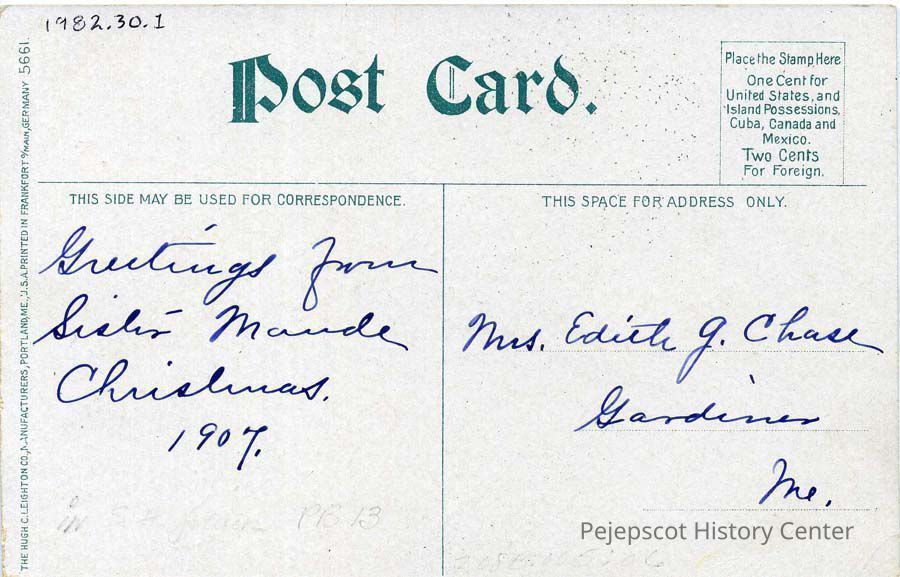 1982.30.1
Post Card.
Place the Stamp Here
One Cent for
United States, and
Island Possessions,
Cuba, Canada and
Mexico.
Two Cents
For Foreign.
THIS SIDE MAY BE USED FOR CORRESPONDENCE.
Greetings from
Sister Maude
Christmas.
1907.
THIS SPACE FOR ADDRESS ONLY.
Mrs. Edith G. Chase
Gardiner
Me.
THE HUGH C. LEIGHTON CO., MANUFACTURERS, PORTLAND, ME., U.S.A. PRINTED IN FRANKFORT o/MAIN, GERMANY 5661.
PB 13
Pejepscot History Center